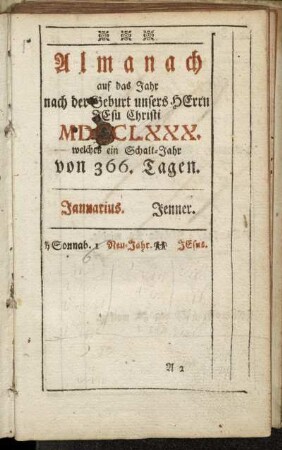 Almanach
auf das Jahr
nach der Geburt unsers HErrn
JEsu Christi
MDCCLXXX.
welches ein Schalt-Jahr
von 366. Tagen.
Januarius. Jenner.
♄ Sonnab. 1 Neu-Jahr. ♊ JEsus.
A 2